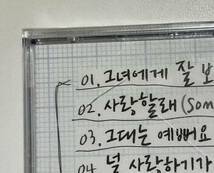 01. 그녀에게 잘 보
02. 사랑할래 (Som
03. 그대는 예뻐요
04. 널 사랑하기가